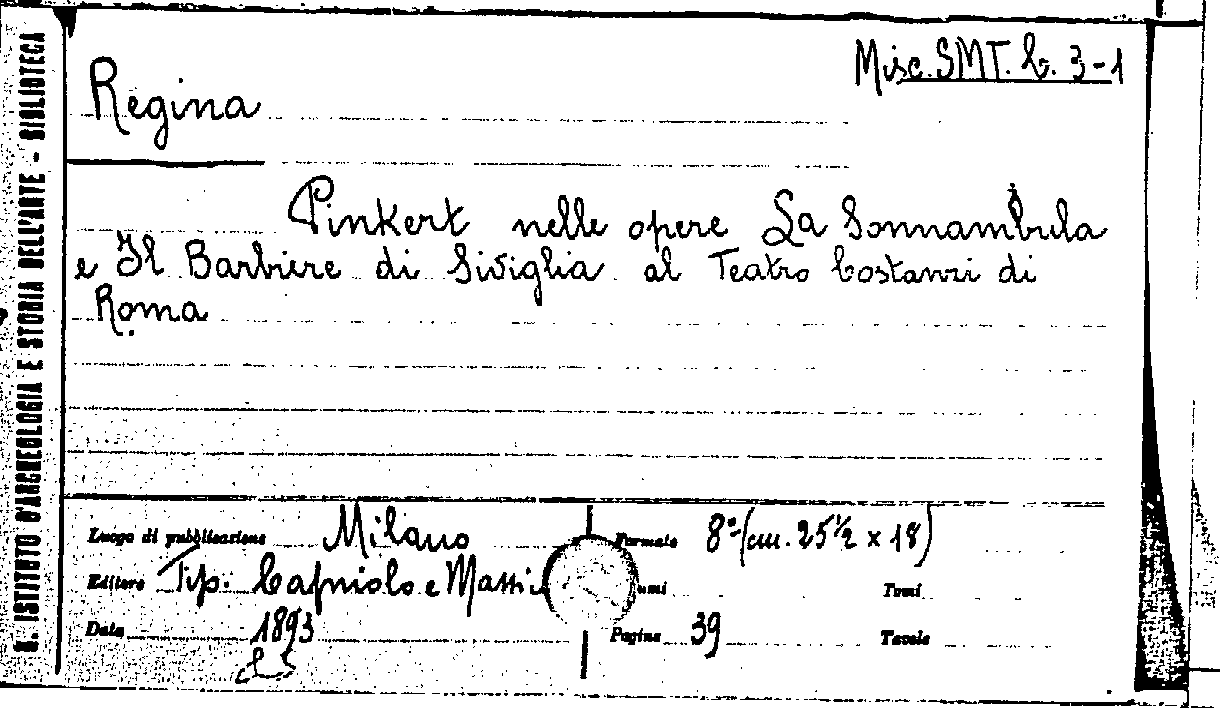 R. ISTITUTO D'ARCHEOLOGIA E STORIA DELL'ARTE - BIBLIOTECA
Misc. SMT. C. 3-1
Regina
Pinkert nelle opere La Sonnambula
e Il Barbiere di Siviglia al Teatro Costanzi di
Roma
Luogo di pubblicazione Milano Formato 8° (cm. 25 ½ x 18)
Editore Tip. Capriolo e umi Tomi
Data 1893 Pagine 39 Tavole